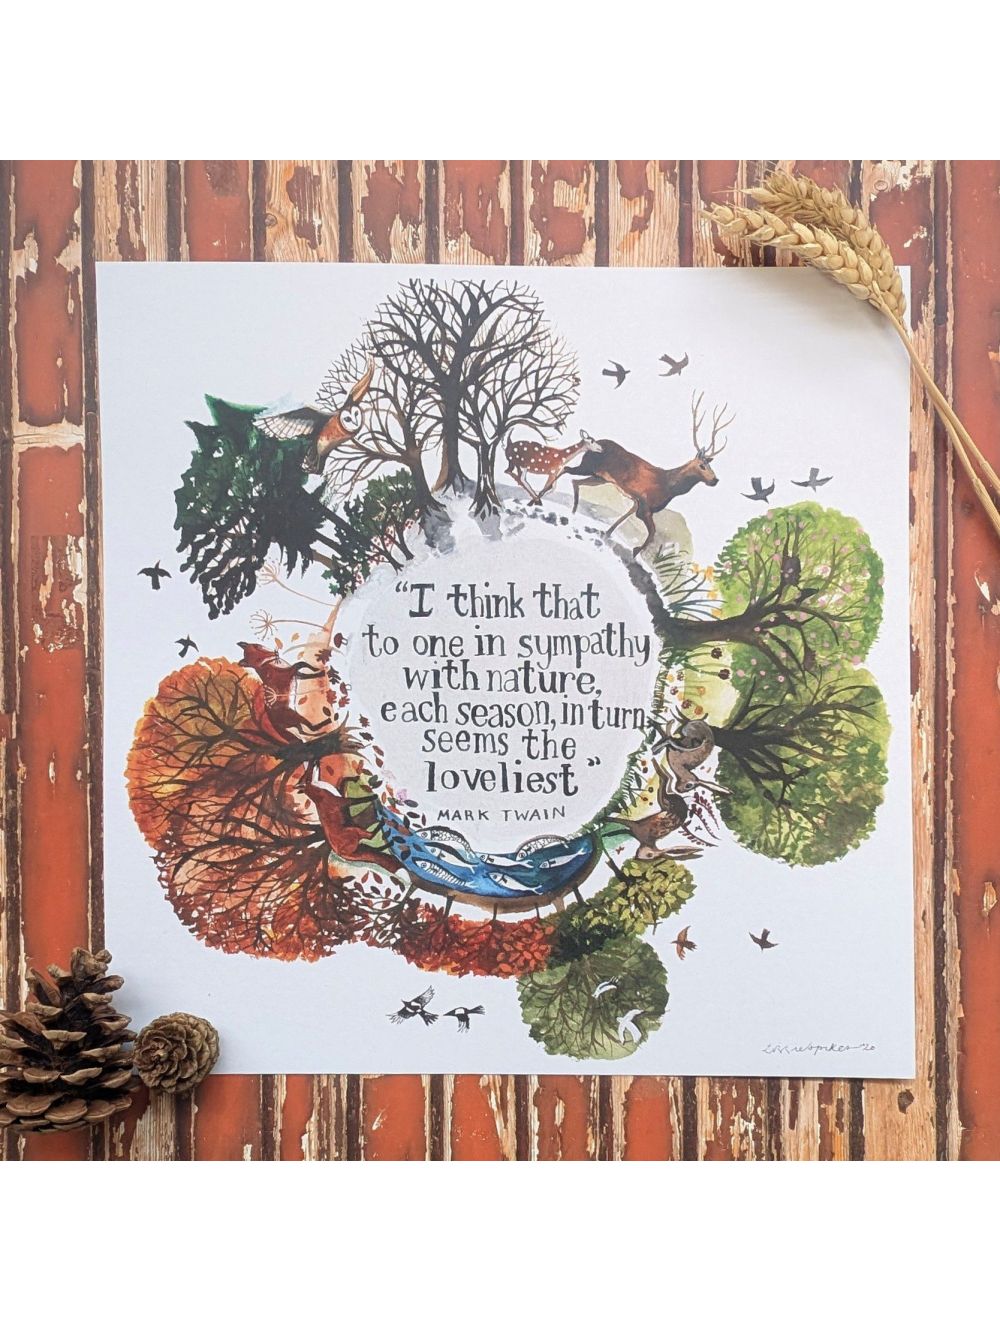 “I think that
to one in sympathy
with nature,
each season, in turn,
seems the
loveliest”
MARK TWAIN